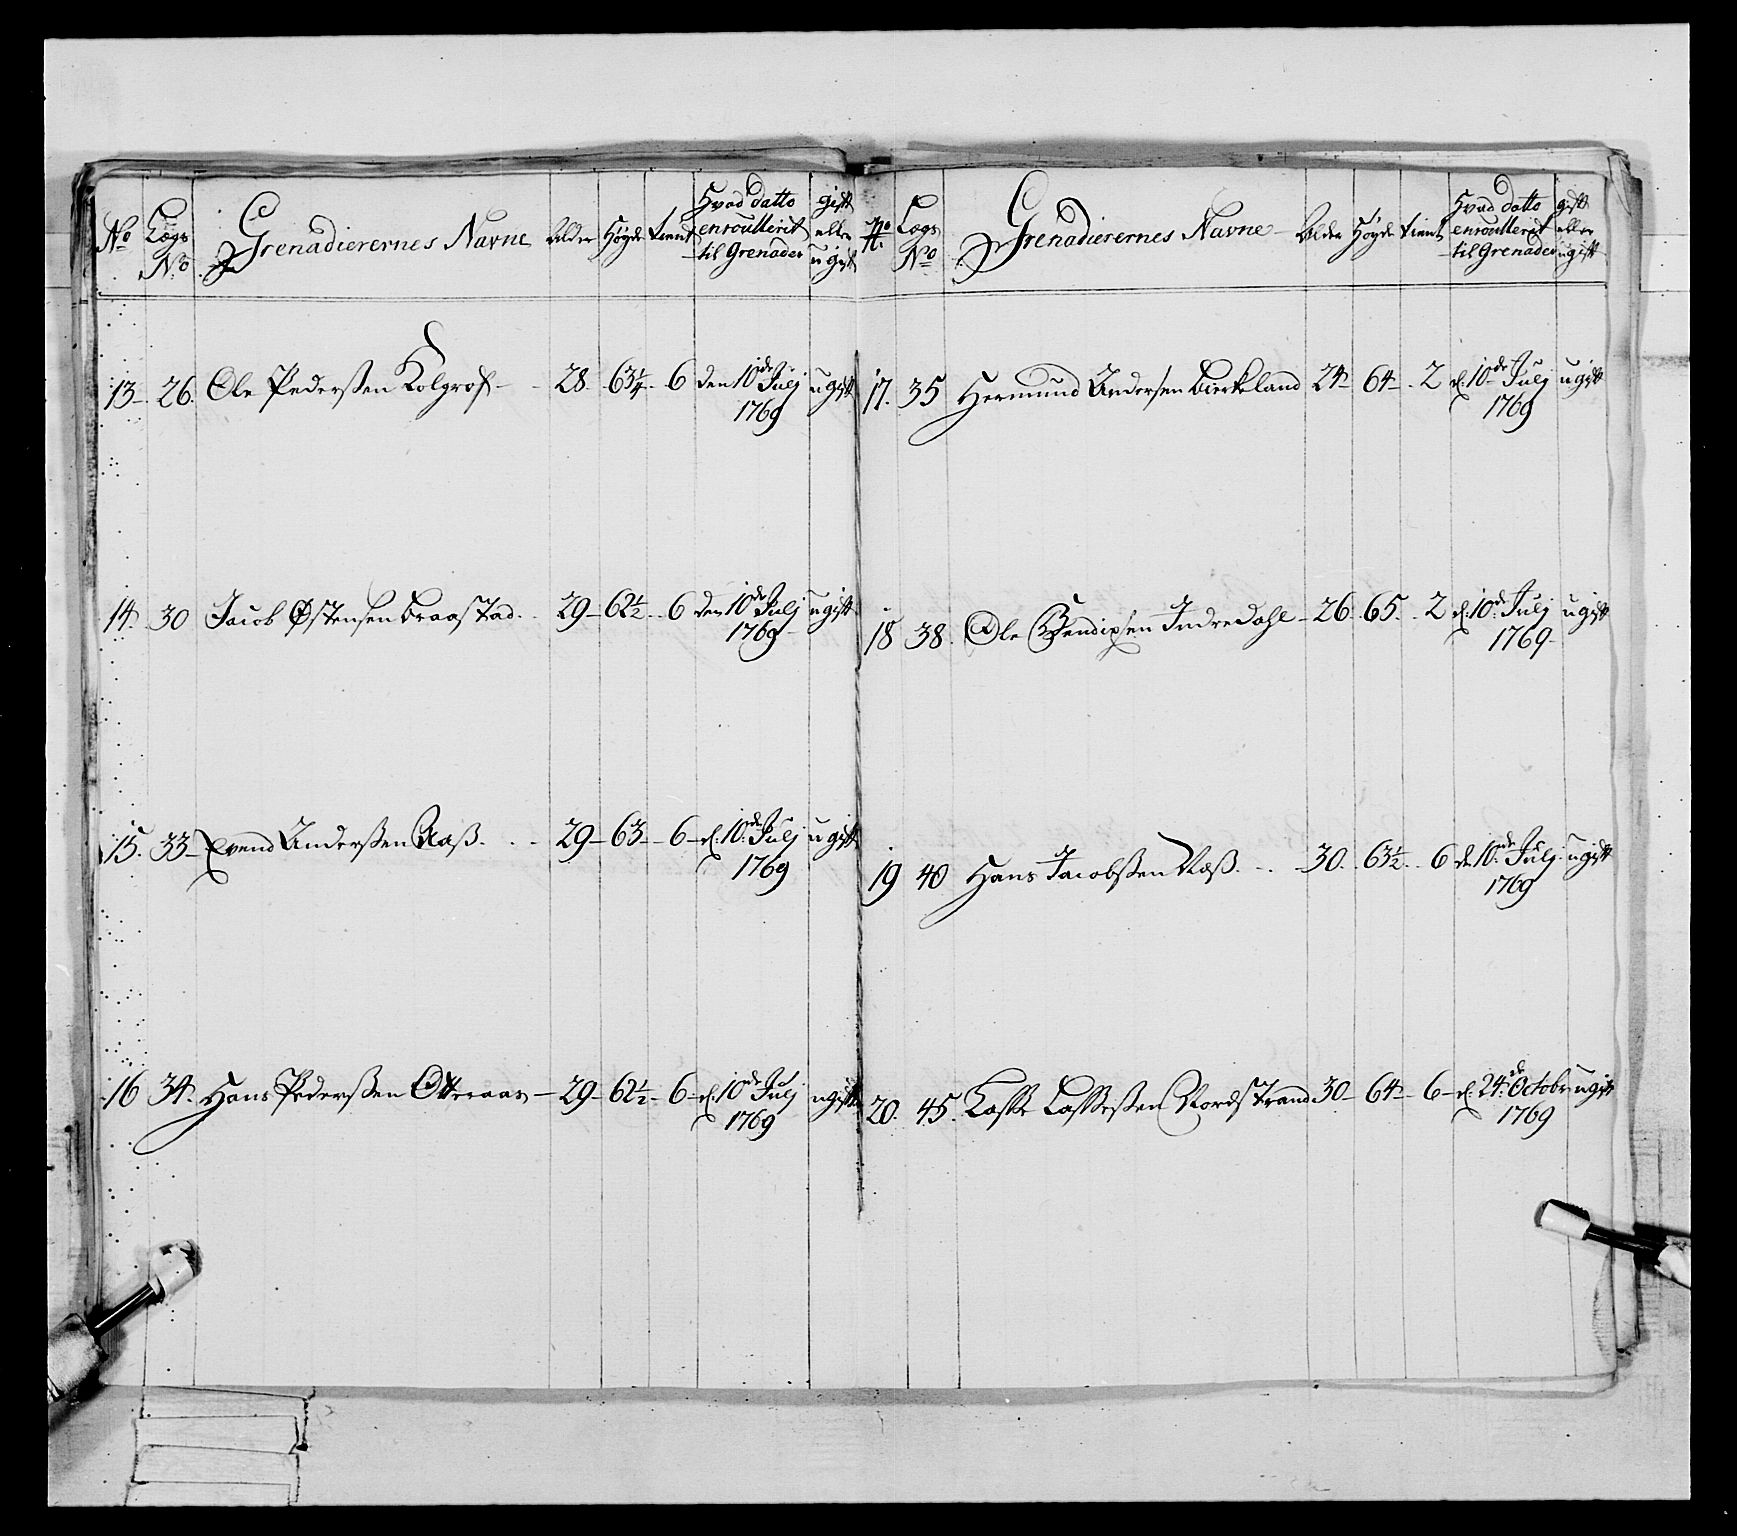 No Lægs No. Grenadierernes Navne Alder Höyde tient Hvad datto enroullerit til Grenader gift eller ugift
13 26. Ole Pederßen Kolgrof 28. 63¼ 6 den 10de Julj 1769 ugift
14. 30 Jacob Østensen Braastad 29 62½ 6 den 10de Julj 1769 ugift
15. 33 Evend Anderßen Aaß 29 63 6 d. 10de Julj 1769 ugift
16 34. Hans Pederßen Otteraas 29 62½ 6 d. 10de Julj 1769 ugift
No Lægs No Grenadierernes Navne Alder Höyde tient Hvad datto enroullerit til Grenader gift eller ugift
17. 35 Hermund Andersen Bierkland 24 64 2 d. 10de Julj 1769 ugift
18 38. Ole Bendixsen Indredahl 26 65. 2 d. 10de Julj 1769 ugift
19 40 Hans Jacobßen Næß 30. 63½ 6 d. 10de Julj 1769 ugift
20. 45. Lasse Lasseßen Nordstrand 30 64 6 d. 24de Octobr 1769 ugift